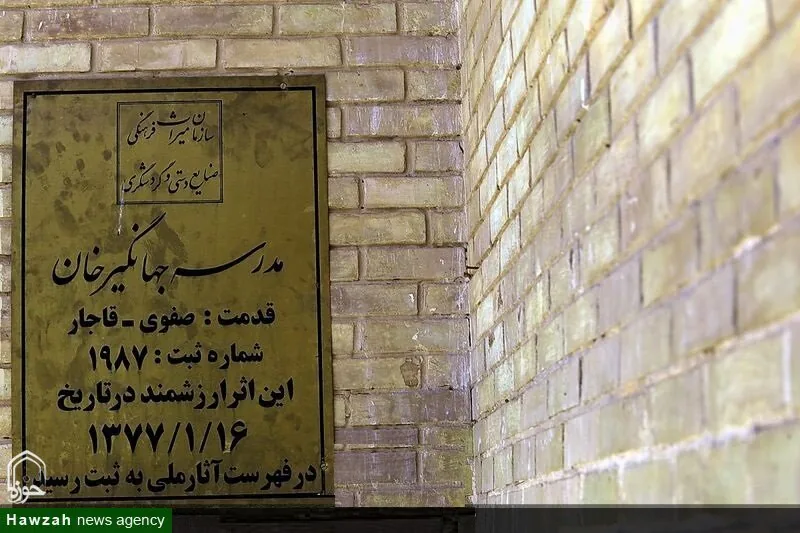 سازمان میراث فرهنگی
صنایع دستی و گردشگری
مدرسه جهانگیرخان
قدمت : صفوی - قاجار
شماره ثبت : ۱۹۸۷
این اثر ارزشمند در تاریخ
۱۳۷۷/۱/۱۶
در فهرست آثار ملی به ثبت رسیده
حوزه
Hawzah news agency